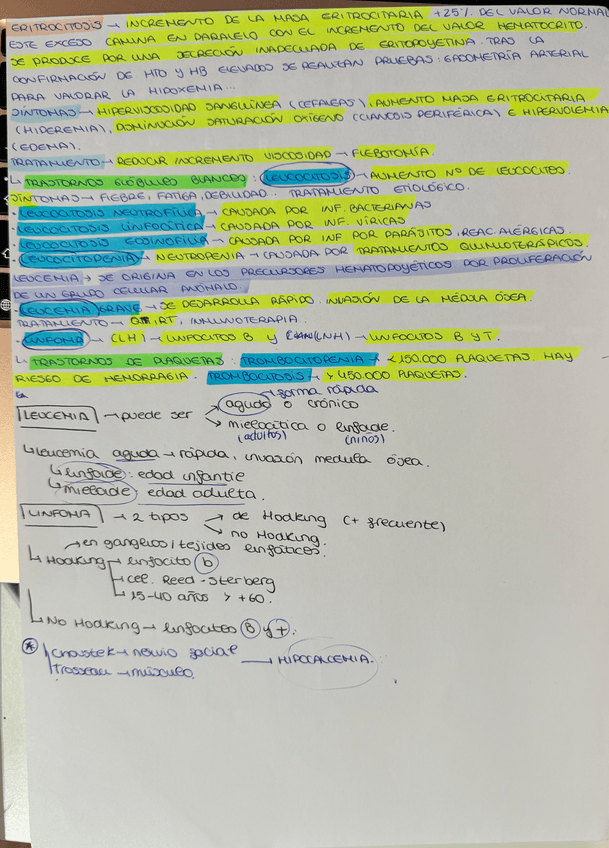 ERITROCITOSIS → INCREMENTO DE LA MASA ERITROCITARIA +25% DEL VALOR NORMAL
ESTE EXCESO CAMINA EN PARALELO CON EL INCREMENTO DEL VALOR HEMATOCRITO.
SE PRODUCE POR UNA SECRECIÓN INADECUADA DE ERITOPOYETINA. TRAS LA
CONFIRMACIÓN DE HTO Y HB ELEVADOS SE REALIZAN PRUEBAS: GASOMETRÍA ARTERIAL
PARA VALORAR LA HIPOXEMIA...
SÍNTOMAS → HIPERVISCOSIDAD SANGUÍNEA (CEFALEAS), AUMENTO MASA ERITROCITARIA
(HIPEREMIA), DISMINUCIÓN SATURACIÓN OXÍGENO (CIANOSIS PERIFÉRICA) E HIPERVOLEMIA
(EDEMA).
TRATAMIENTO → REDUCIR INCREMENTO VISCOSIDAD → FLEBOTOMÍA.
↳ TRASTORNOS GLÓBULOS BLANCOS: LEUCOCITOSIS → AUMENTO Nº DE LEUCOCITOS.
SÍNTOMAS → FIEBRE, FATIGA, DEBILIDAD. TRATAMIENTO ETIOLÓGICO.
· LEUCOCITOSIS NEUTROFÍLICA → CAUSADA POR INF. BACTERIANAS
· LEUCOCITOSIS LINFOCÍTICA → CAUSADA POR INF. VÍRICAS
· LEUCOCITOSIS EOSINOFILIA → CAUSADA POR INF POR PARÁSITOS, REAC. ALÉRGICAS.
· LEUCOCITOPENIA → NEUTROPENIA → CAUSADA POR TRATAMIENTOS QUIMIOTERÁPICOS.
LEUCEMIA → SE ORIGINA EN LOS PRECURSORES HEMATOPOYÉTICOS POR PROLIFERACIÓN
DE UN GRUPO CELULAR ANÓMALO.
· LEUCEMIA GRAVE → SE DESARROLLA RÁPIDO. INVASIÓN DE LA MÉDULA ÓSEA.
TRATAMIENTO → QT, RT, INMUNOTERAPIA.
· LINFOMA → (LH) → LINFOCITOS B Y (LNH) → LINFOCITOS B Y T.
↳ TRASTORNOS DE PLAQUETAS: TROMBOCITOPENIA → <150.000 PLAQUETAS. HAY
RIESGO DE HEMORRAGIA. TROMBOCITOSIS → > 450.000 PLAQUETAS.
→ forma rápida
LEUCEMIA → puede ser → aguda o crónica
→ mielocítica o linfoide.
(adultos) (niños)
↳ Leucemia aguda → rápida, invasión medula ósea.
↳ linfoide: edad infantil
↳ mieloide: edad adulta.
LINFOMA → 2 tipos → de Hodking (+ frecuente)
→ no Hodking.
→ en ganglios / tejidos linfáticos.
↳ Hodking → linfocito b
→ cel. Reed-Sterberg
↳ 15-40 años y +60.
↳ No Hodking → linfocitos B y T.
* Chvostek → nervio facial
Trosseau → músculo. → HIPOCALCEMIA.